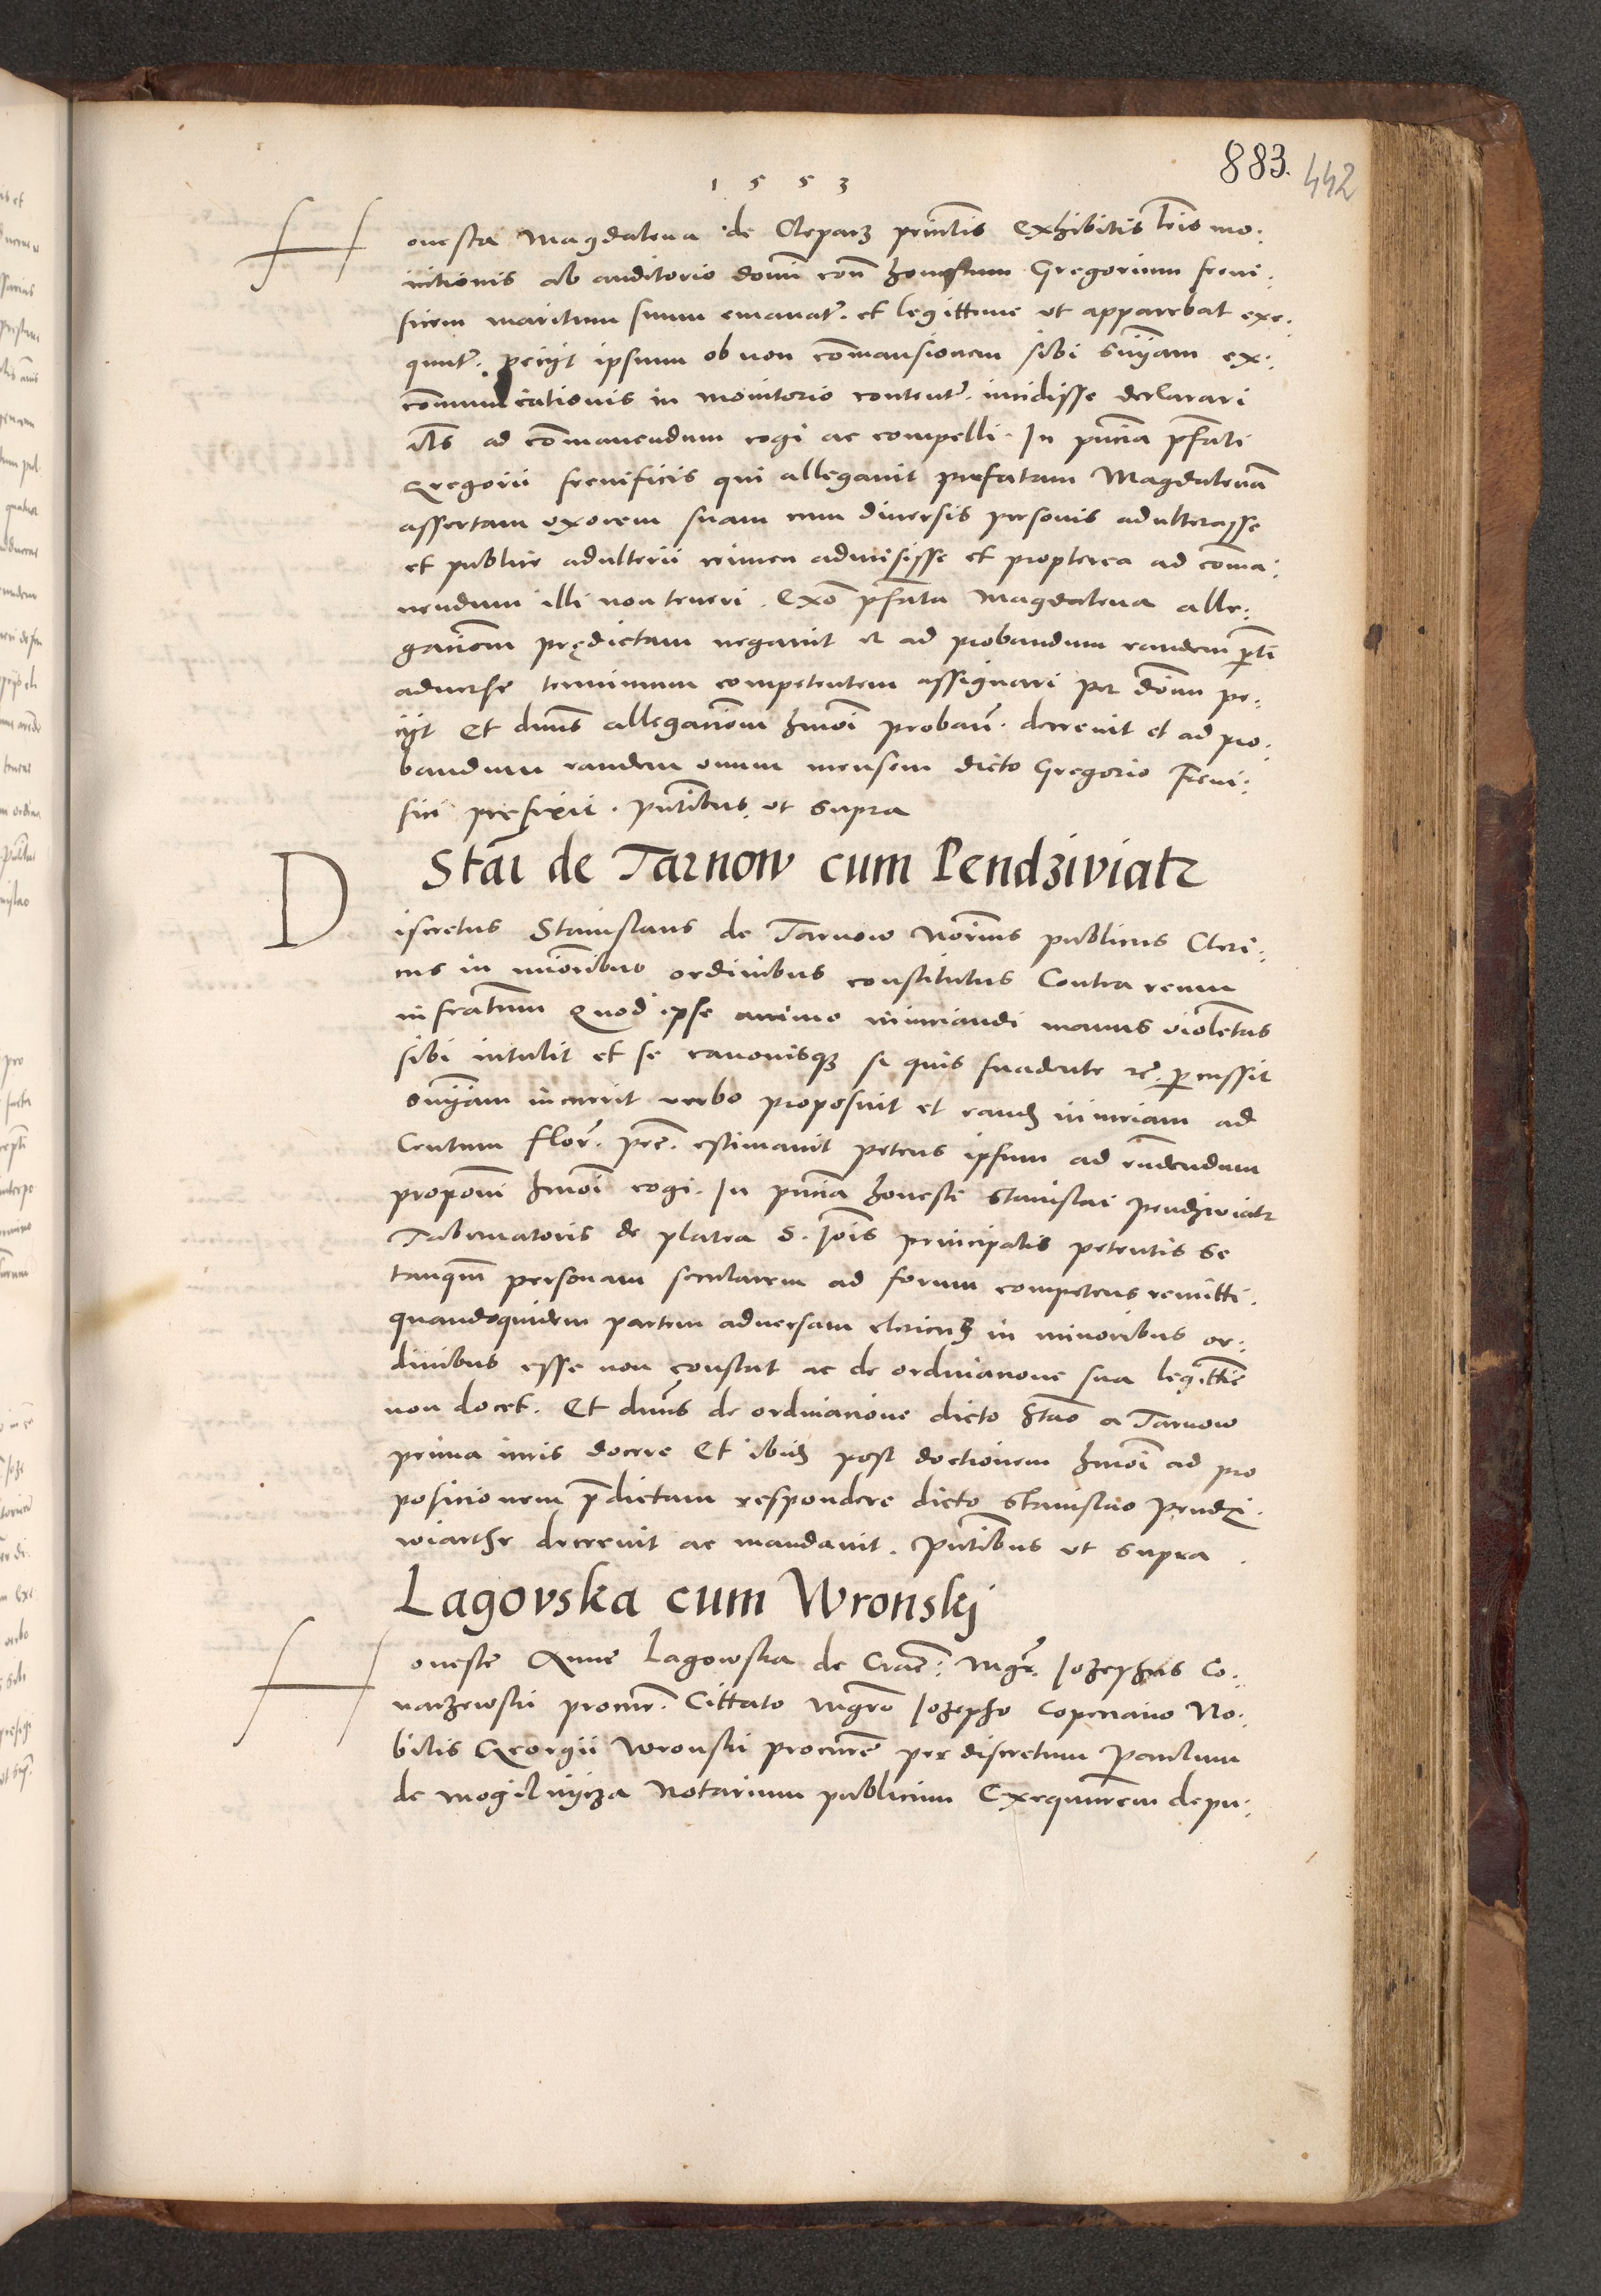 1553
883.
442
Honesta Magdalena de Cleparz prēntis Exhibitis lrīs mo:
nitionis ab auditorio domī con̄ honestum Gregorium freni:
ficem maritum suum emanat̄. et legittime ut apparebat exe:
quut̄. peciit ipsum ob non com̄ansionem sibi sn̄yam ex:
com̄unicationis in monitorio content̄. incidisse declarari
ill̄s ad com̄anendum cogi ac compelli. In pn̄cia p̄fati
Gregorii frenificis qui allegavit prefatam Magdalenā
assertam uxorem suam cum diversis personis adulterasse
et publice adulterii crimen admisisse et propterea ad com̄a:
nendum illi non teneri. Exō p̄fata Magdalena alle:
gatiōem prędictam negavit et ad probandum eandem p̄ti
adverse terminum competentem assignari per dōnum pe:
ciit Et dnūs allegatiōem hmōi probat̄. decrevit et ad pro:
bandum eandem unum mensem dicto Gregorio Freni:
fici prefixit. pn̄tibus ut supra
Stāi de Tarnow cum Pendziviatr
Discretus Stanislaus de Tarnow Notr̄ius publicus Cleri:
cus in miōribus ordinibus constitutus Contra reum
infrātum Quod ipse animo iniuriandi manus violentas
sibi intulit et se canonisq3 si quis suadente rē. percussit
sn̄yam incurrit verbo proposuit et eand3 iniuriam ad
Centum flor̄. prē. estimavit petens ipsum ad rn̄dendum
propōni hmōi cogi. In pn̄cia honesti Stanislai Pendziviatr
Tabernatoris de platea S. Joīs principalis petentis se
tanq̄m personam secularem ad forum competens remitti.
quandoquidem partem adversam clericu3 in minoribus or:
dinibus esse non constat ac de ordinacione sua legittīe
non docet. Et dnūs de ordinacione dicto Stāo a Tarnow
prima iuris docere Et ibid3 post doctionem hmōi ad pro
posicionem p̄dictam respondere dicto Stanislao Pendzi.
wiathr decrevit ac mandavit. pn̄tibus ut supra.
Lagovska cum Wronskj
Honeste Anne Lagowska de Crac̄: Mgr̄. Jozephus Co:
narzewski procur̄. Cittato Mgrō Jozepho Coperano No:
bilis Georgii Wronski procurē per discretum Paulum
de Mogilnycza Notarium publicum Exequutorem depu: